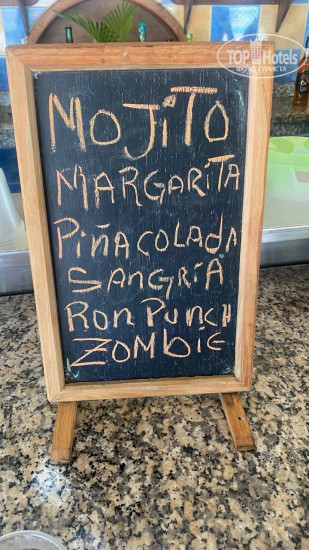 TOP Hotels
MOJITO
MARGARITA
PIÑACOLADA
SANGRÍA
RON PUNCH
ZOMBIE